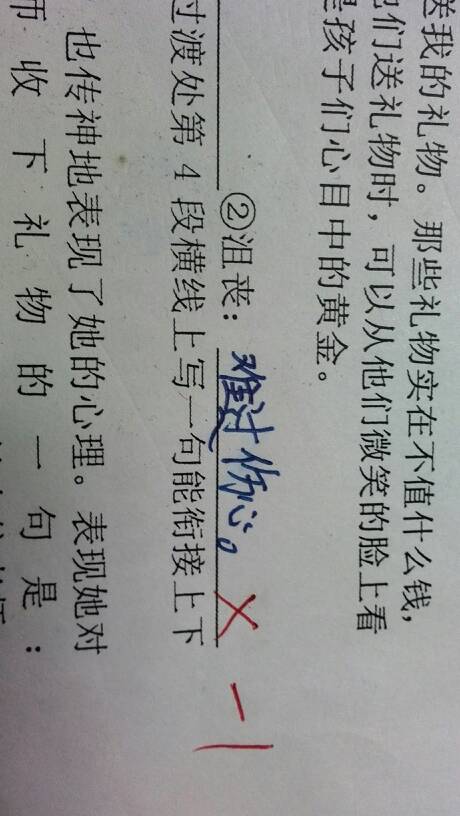 送我的礼物。那些礼物实在不值什么钱,
他们送礼物时,可以从他们微笑的脸上看
是孩子们心目中的黄金。
②沮丧:难过伤心。 × -1
过渡处第 4 段横线上写一句能衔接上下
也传神地表现了她的心理。表现她对
师收下礼物的一句是: